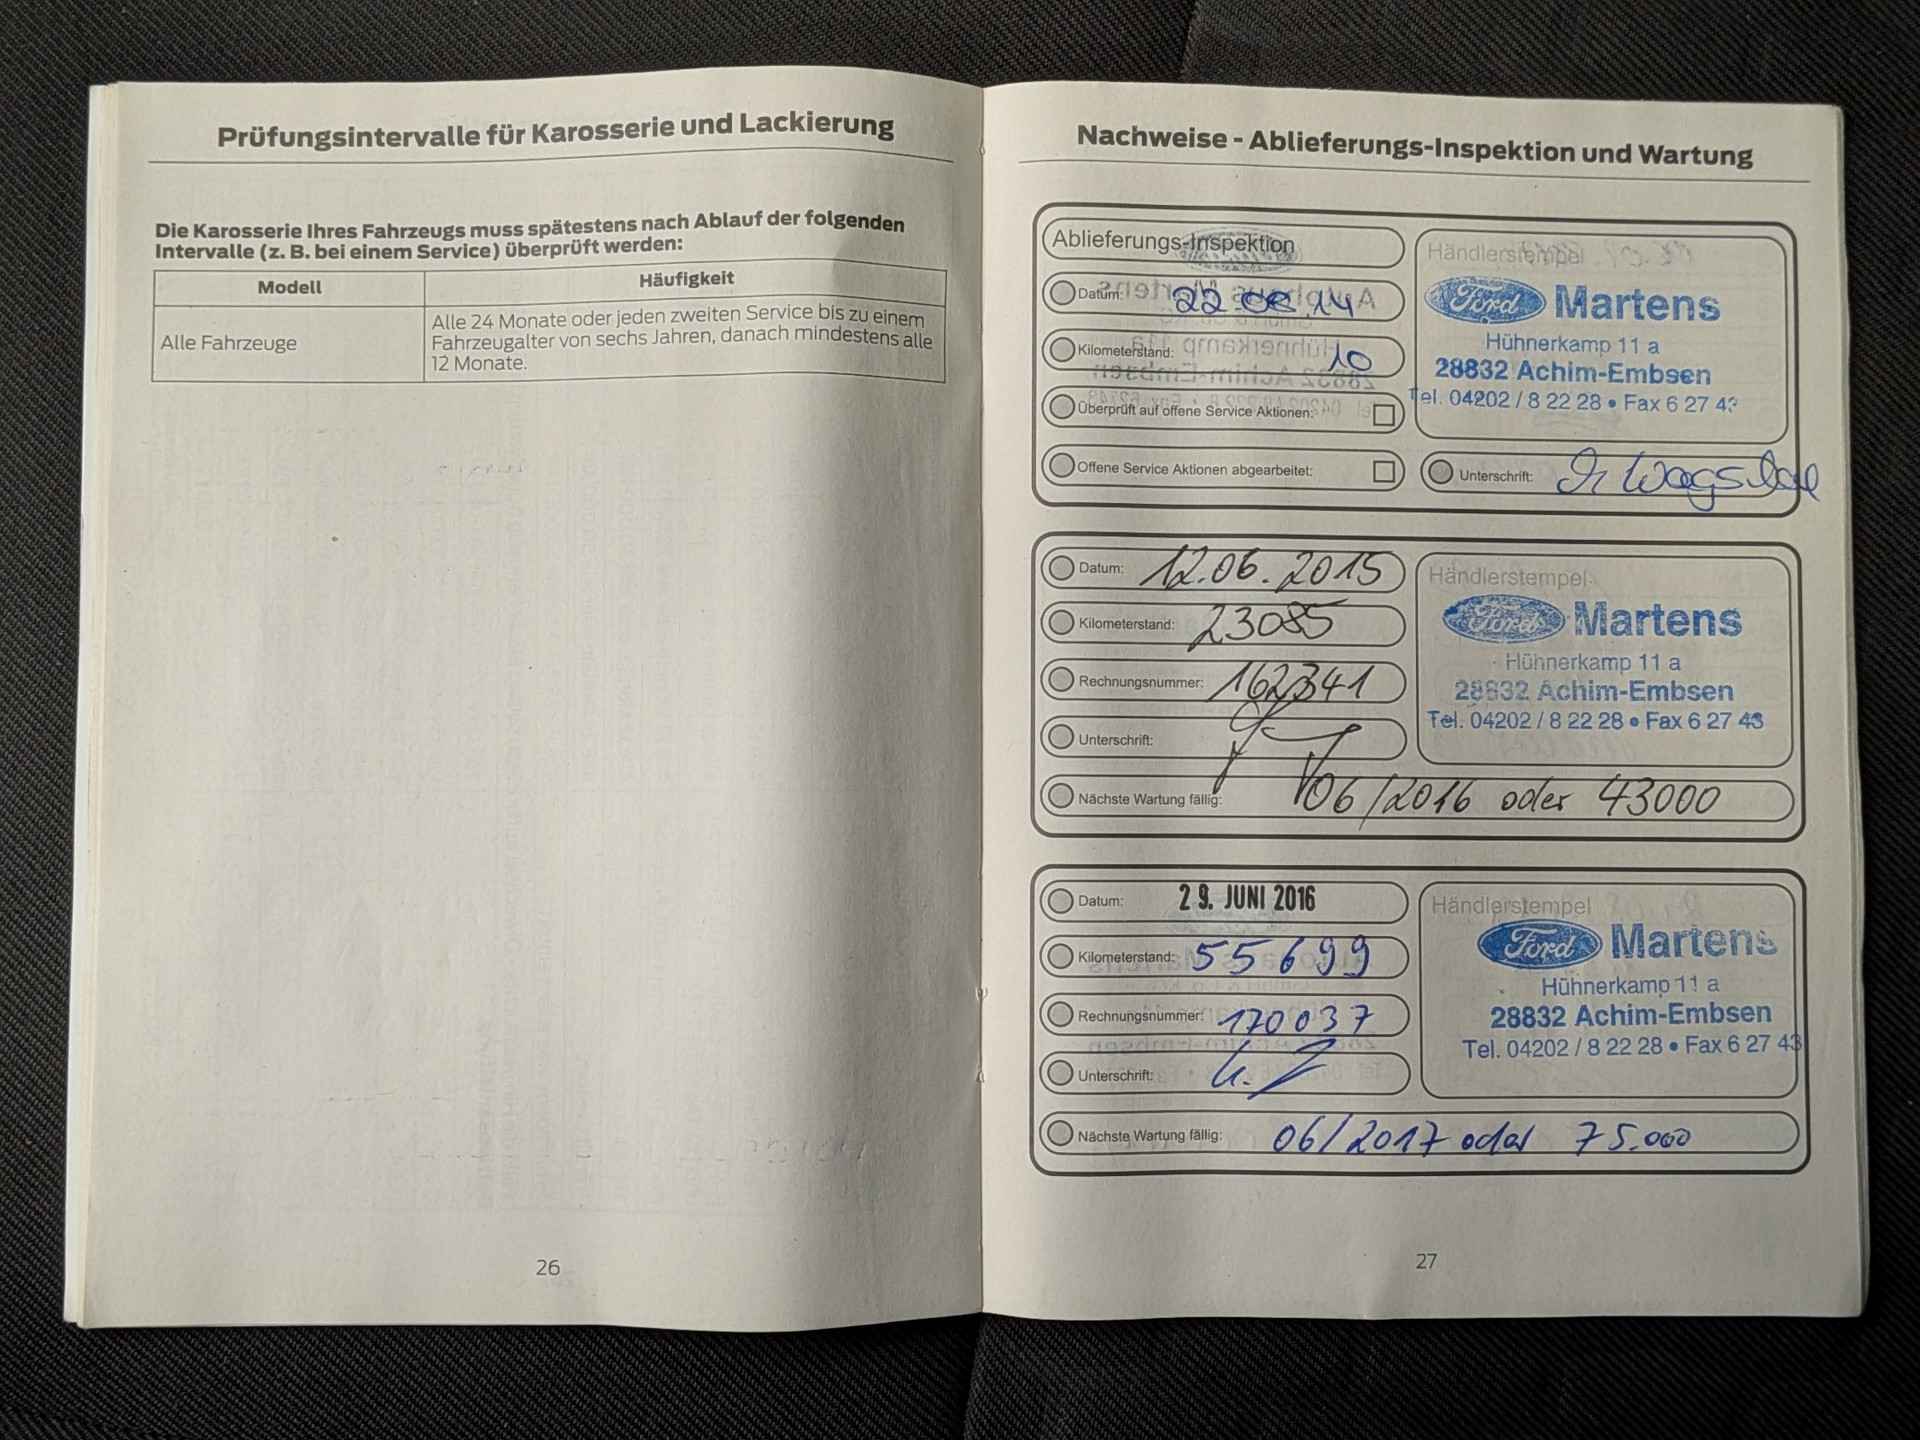 Prüfungsintervalle für Karosserie und Lackierung
Die Karosserie Ihres Fahrzeugs muss spätestens nach Ablauf der folgenden
Intervalle (z. B. bei einem Service) überprüft werden:
Modell
Häufigkeit
Alle Fahrzeuge
Alle 24 Monate oder jeden zweiten Service bis zu einem
Fahrzeugalter von sechs Jahren, danach mindestens alle
12 Monate.
26
Nachweise - Ablieferungs-Inspektion und Wartung
Ablieferungs-Inspektion
Datum: 22.08.14
Kilometerstand: 10
Überprüft auf offene Service Aktionen:
Offene Service Aktionen abgearbeitet:
Händlerstempel
Ford Martens
Hühnerkamp 11 a
28832 Achim-Embsen
Tel. 04202 / 8 22 28 • Fax 6 27 43
Unterschrift:
Datum: 12.06.2015
Kilometerstand: 23085
Rechnungsnummer: 162341
Unterschrift:
Nächste Wartung fällig: 06/2016 oder 43000
Händlerstempel
Ford Martens
Hühnerkamp 11 a
28832 Achim-Embsen
Tel. 04202 / 8 22 28 • Fax 6 27 43
Datum: 29. JUNI 2016
Kilometerstand: 55699
Rechnungsnummer: 170037
Unterschrift:
Nächste Wartung fällig: 06/2017 oder 75.000
Händlerstempel
Ford Martens
Hühnerkamp 11 a
28832 Achim-Embsen
Tel. 04202 / 8 22 28 • Fax 6 27 43
27